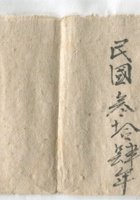 民國叁拾肆年